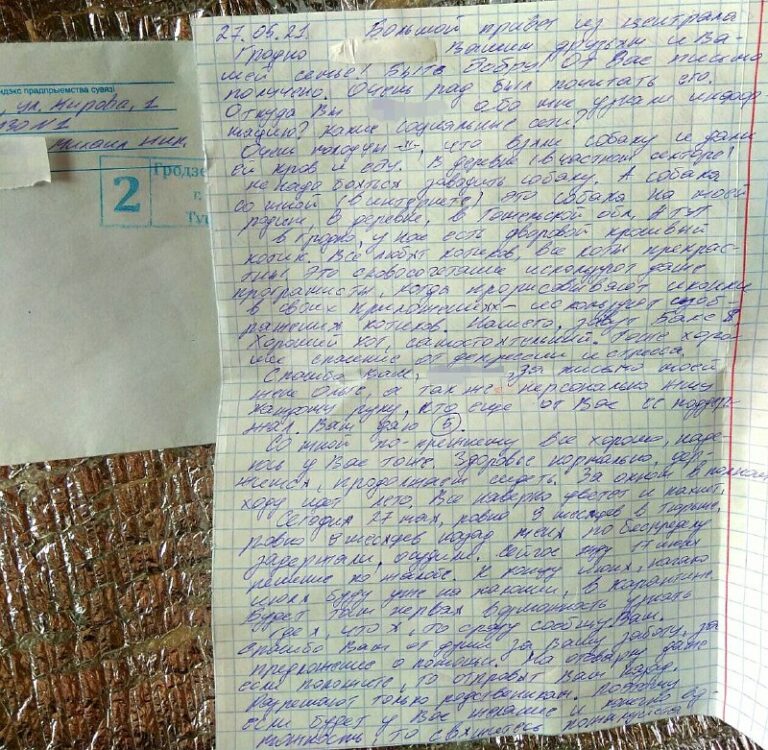 ндэкс прадпрыемства сувязі
, ул. Кирова, 1
230011
Михаил Ник.
2
Гродзе
г.
Ту
27.05.21 Большой привет из централа
Гродно Вашим друзьям и Ва-
шей семье! Быть добру! От Вас письмо
получено. Очень рад был почитать его.
Откуда Вы обо мне узнали инфор-
мацию? Какие социальные сети?
Очень молодцы, что взяли собаку и дали
ей кров и еду. В деревне (в частном секторе)
не надо бояться заводить собаку. А собака
со мной (в интернете) это собака на моей
родине, в деревне, в обл. А тут
в Гродно, у нас есть дворовой
котик. Все любят котиков, все коты прекрас-
ны! Это словосочетание использует даже
програмисты, когда прорисовывают иконки
в своих приложениях - используют изоб-
ражения котиков. Нашего, зовут Бакс
Хороший кот, самостоятельный. Тоже хоро-
шее спасение от депрессии и стресса.
Спасибо Вам, за письмо моей
жене Ольге, а так же персонально жму
каждому руку, кто еще от Вас её поддер-
жал. Вам даю 5.
Со мной по-прежнему все хорошо, наде-
юсь у Вас тоже. Здоровье нормально, дер-
жимся, продолжаем сидеть. За окном в полном
ходу идет лето. Все наверно цветет и пахнет.
Сегодня 27 мая, ровно 9 месяцев в тюрьме,
ровно 9 месяцев назад меня по беспределу
задержали, осудили, сейчас жду 11 июня
решение по жалобе. К концу июня, начало
июля буду уже на колонии, в карантине.
Будет там первая возможность узнать
где я, что я, то сразу сообщу Вам.
Спасибо Вам от души за Вашу заботу, за
предложение о помощи. На отоварку даже
если положите, то отправят Вам назад.
Разрешают только родственникам. Поэтому
если будет у Вас желание и конечно воз-
можность то свяжитесь пожалуйста